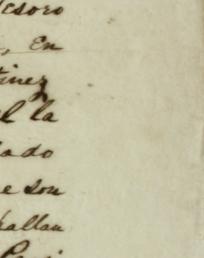 tesoro
, en
tinez
el la
lado
e son
hallan